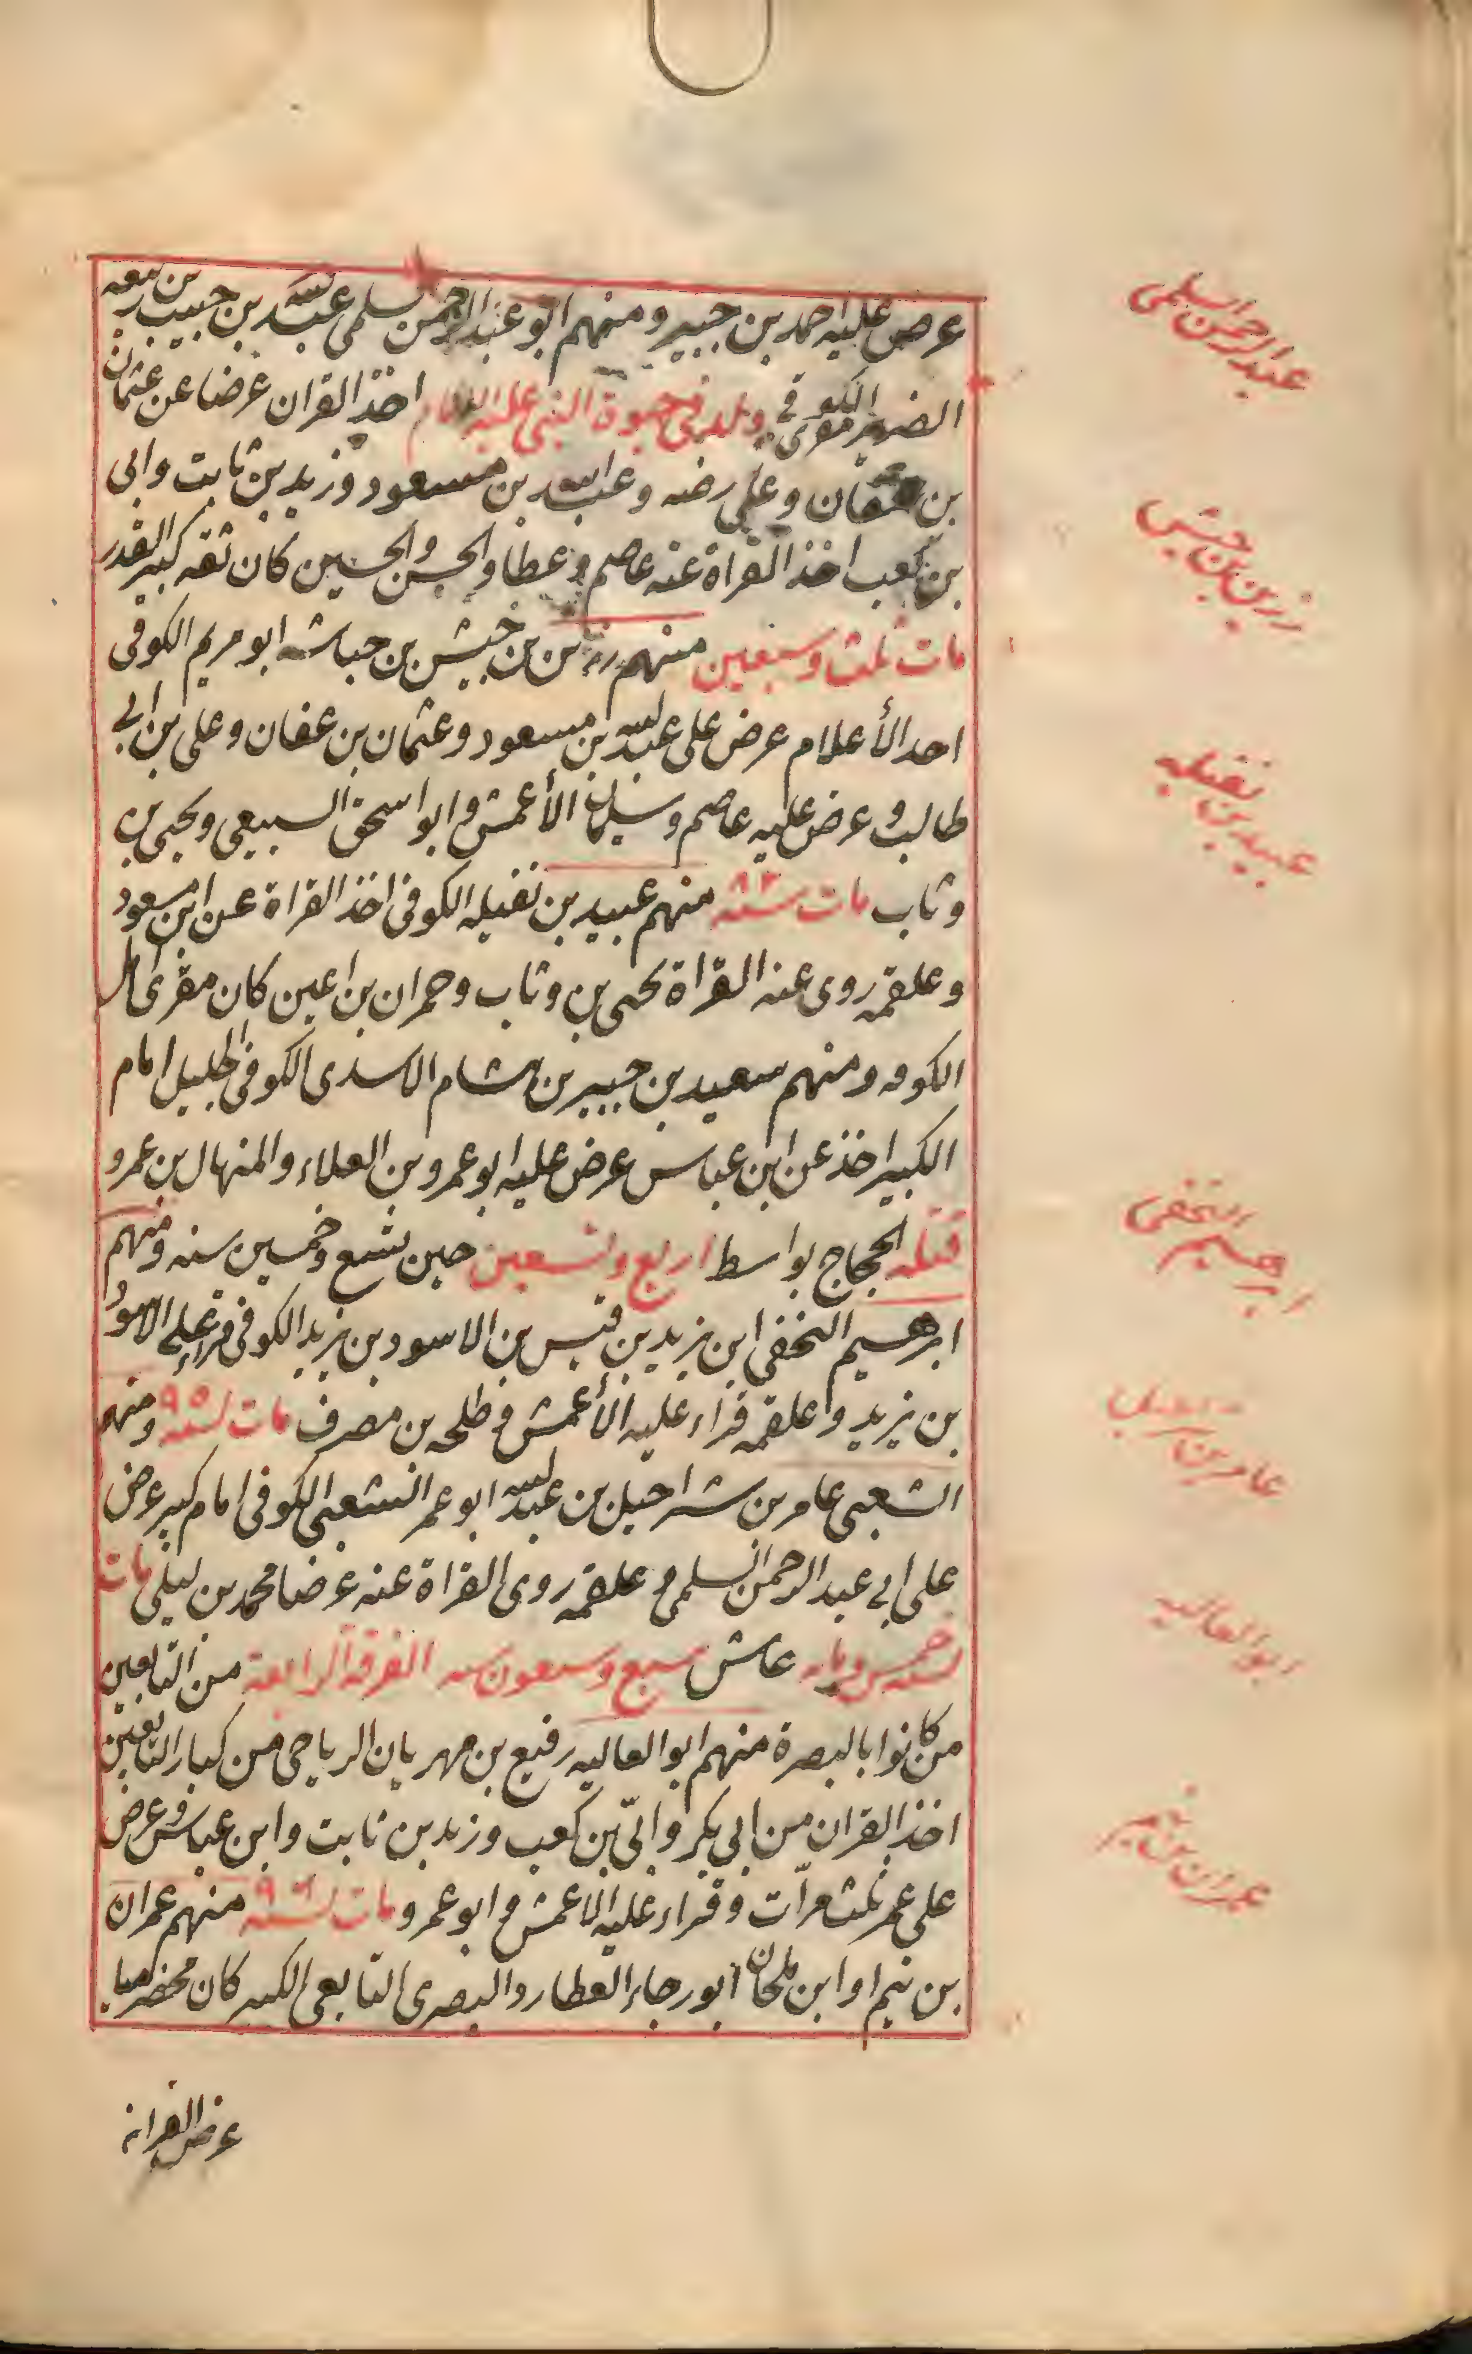 عرض عليه احمد بن جبير ومنهم ابو عبد الرحمن سلمى عبد الله بن حبيب بن ربيعه
الضرير مقرئ الكوفى ولد فى حيوة النبى عليه السلام اخذ القران عرضا عن عثمان
بن عفان وعلى رضه وعبد الله بن مسعود وزيد بن ثابت وابى
بن كعب اخذ القراة عنه عاصم وعطا والحسن والحسين كان ثقه كبير القدر
مات ثلث وسبعين منهم زر بن حبيش بن حباشه ابو مريم الكوفى
احد الأعلام عرض على عبد الله بن مسعود وعثمان بن عفان وعلى بن ابى
طالب و عرض عليه عاصم وسليمان الأعمش و ابو اسحق السبيعى ويحيى بن
وثاب مات سنه ٨٢ منهم عبيد بن نفيله الكوفى اخذ القراة عن ابن مسعود
وعلقمه روى عنه القراة يحيى بن وثاب وحمران بن اعين كان مقرى اهل
الكوفه ومنهم سعيد بن جبير بن هشام الاسدى الكوفى الجليل امام
الكبير اخذ عن ابن عباس عرض عليه ابو عمرو بن العلاء والمنهال بن عمرو
قتله الحجاج بواسط اربع وتسعين حين تسع وخمسين سنه ومنهم
ابرهسيم النخفى ابن يزيد بن قيس بن الاسود بن يزيد الكوفى قراء على الاسود
بن يزيد وعلقمه قراء عليه الأعمش و طلحه بن مصرف مات سنه ٩٥ ومنهم
الشعبى عامر بن شراحيل بن عبد الله ابو عمر الشعبى الكوفى امام كبير عرض
على ابى عبد الرحمن السلمى و علقمه روى القراة عنه عرضا محمد بن ليلى مات
سنه خمس ومايه عاش سبع وسبعون سنه الفرقة الرابعة من التابعين
من كانوا بالبصرة منهم ابو العاليه رفيع بن مهريان الرياحى من كبار التابعين
اخذ القران من ابى بكر وابىّ بن كعب وزيد بن ثابت وابن عباس و عرض
على عمر ثلث مرّات وقراء عليه الاعمش و ابو عمرو مات سنه ٩٠ منهم عمران
بن تيم او ابن ملحان ابو رجاء العطارد البصرى التابعى الكبير كان مخضرميا
عرض القرانه
عبد الرحمن السلمى
زر بن حبيش
عبيد بن نفيله
ابرهسيم النخفى
عامر بن شراحيل
ابو العاليه
عمران بن تيم